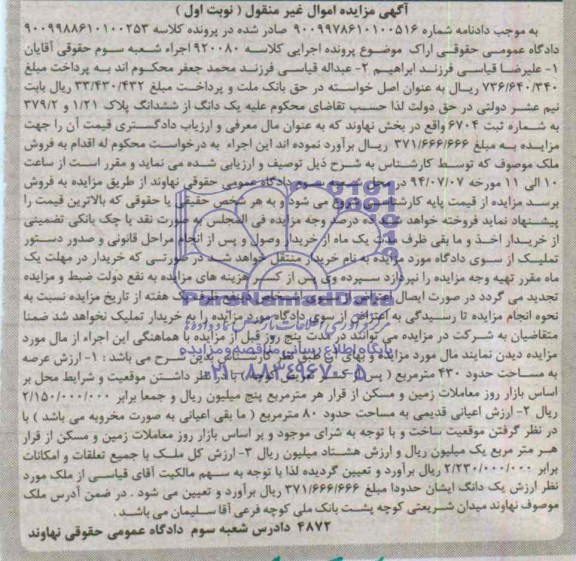 آگهی مزایده اموال غیر منقول ( نوبت اول )
به موجب دادنامه شماره ۹۰۰۹۹۷۸۶۱۰۱۰۰۵۱۶ صادر شده در پرونده کلاسه ۹۰۰۹۹۸۸۶۱۰۱۰۰۲۵۳
دادگاه عمومی حقوقی اراک موضوع پرونده اجرایی کلاسه ۹۲۰۰۸۰ اجراء شعبه سوم حقوقی آقایان
۱- علیرضا قیاسی فرزند ابراهیم ۲- عبداله قیاسی فرزند محمد جعفر محکوم اند به پرداخت مبلغ
۷۳۶/۶۴۰/۳۴۰ ریال به عنوان اصل خواسته در حق بانک ملت و پرداخت مبلغ ۳۳/۴۳۰/۴۳۲ ریال بابت
نیم عشر دولتی در حق دولت لذا حسب تقاضای محکوم علیه یک دانگ از ششدانگ پلاک ۱/۲۱ و ۳۷۹/۲
به شماره ثبت ۶۷۰۴ واقع در بخش نهاوند که به عنوان مال معرفی و ارزیاب دادگستری قیمت آن را جهت
مزایده به مبلغ ۳۷۱/۶۶۶/۶۶۶ ریال برآورد نموده اند این اجراء به درخواست محکوم له اقدام به فروش
ملک موصوف که توسط کارشناس به شرح ذیل توصیف و ارزیابی شده می نماید و مقرر است از ساعت
۱۰ الی ۱۱ مورخه ۹۴/۰۷/۰۷ در محل شعبه سوم دادگاه عمومی حقوقی نهاوند از طریق مزایده به فروش
برسد مزایده از قیمت پایه کارشناسی شروع می شود و به هر شخص حقیقی یا حقوقی که بالاترین قیمت را
پیشنهاد نماید فروخته خواهد شد ده درصد وجه مزایده فی المجلس به صورت نقد یا چک بانکی تضمینی
از خریدار اخذ و ما بقی ظرف مدت یک ماه از خریدار وصول و پس از انجام مراحل قانونی و صدور دستور
تملیک از سوی دادگاه مورد مزایده به نام خریدار منتقل خواهد شد در صورتی که خریدار در مهلت یک
ماه مقرر تهیه وجه مزایده را نپردازد سپرده وی پس از کسر هزینه های مزایده به نفع دولت ضبط و مزایده
تجدید می گردد در صورت ایصال یک هفته از تاریخ مزایده نسبت به
نحوه انجام مزایده تا رسیدگی به اعتراض از سوی دادگاه مورد مزایده را به خریدار تملیک نخواهد شد ضمنا
متقاضیان به شرکت در مزایده می توانند در مدت پنج روز قبل از مزایده با هماهنگی این اجراء از مال مورد
مزایده دیدن نمایند مال مورد مزایده و بهای آن طبق نظر کارشناس بدین شرح می باشد : ۱- ارزش عرصه
به مساحت حدود ۴۳۰ مترمربع ( پس از تعریض کوچه ) با در نظر داشتن موقعیت و شرایط محل بر
اساس بازار روز معاملات زمین و مسکن از قرار هر مترمربع پنج میلیون ریال و جمعا برابر ۲/۱۵۰/۰۰۰/۰۰۰
ریال ۲- ارزش اعیانی قدیمی به مساحت حدود ۸۰ مترمربع ( ما بقی اعیانی به صورت مخروبه می باشد ) با
در نظر گرفتن موقعیت ساخت و با توجه به شرای موجود و بر اساس بازار روز معاملات زمین و مسکن از قرار
هر متر مربع یک میلیون ریال و ارزش هشتاد میلیون ریال ۳- ارزش کل ملک با جمیع تعلقات و امکانات
برابر ۲/۲۳۰/۰۰۰/۰۰۰ ریال برآورد و تعیین گردیده لذا با توجه به سهم مالکیت آقای قیاسی از ملک مورد
نظر ارزش یک دانگ ایشان حدودا مبلغ ۳۷۱/۶۶۶/۶۶۶ ریال برآورد و تعیین می شود . در ضمن آدرس ملک
موصوف نهاوند میدان شریعتی کوچه پشت بانک ملی کوچه فرعی آقا سلیمان می باشد .
۴۸۷۲ دادرس شعبه سوم دادگاه عمومی حقوقی نهاوند
پایگاه اطلاع رسانی مناقصه و مزایده
۰۲۱-۸۸۳۴۹۶۷۰-۵